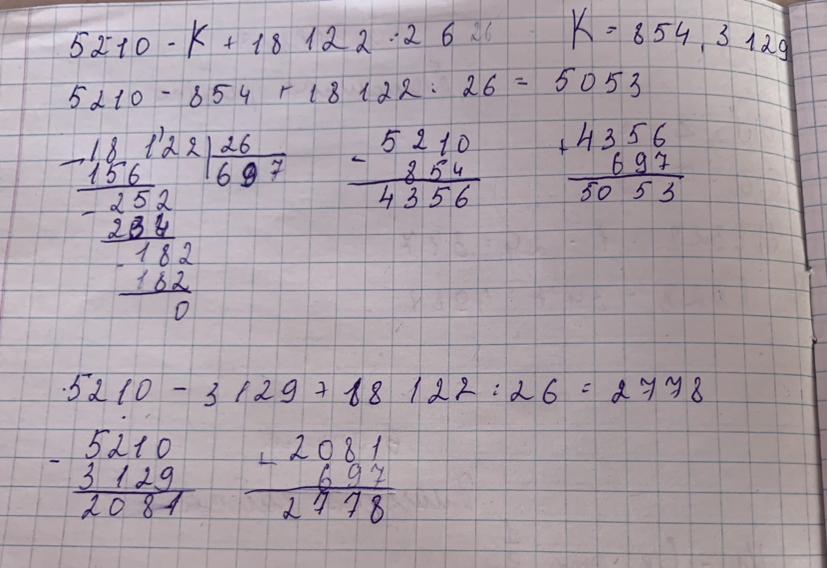 5210 - K + 18 122 : 26 26 K = 854, 3129
5210 - 854 + 18122 : 26 = 5053
- 18 122 | 26
156 697
- 252
234
- 182
182
0
- 5210
854
4356
+ 4356
697
5053
5210 - 3129 + 18 122 : 26 = 2778
- 5210
3129
2081
+ 2081
697
2778